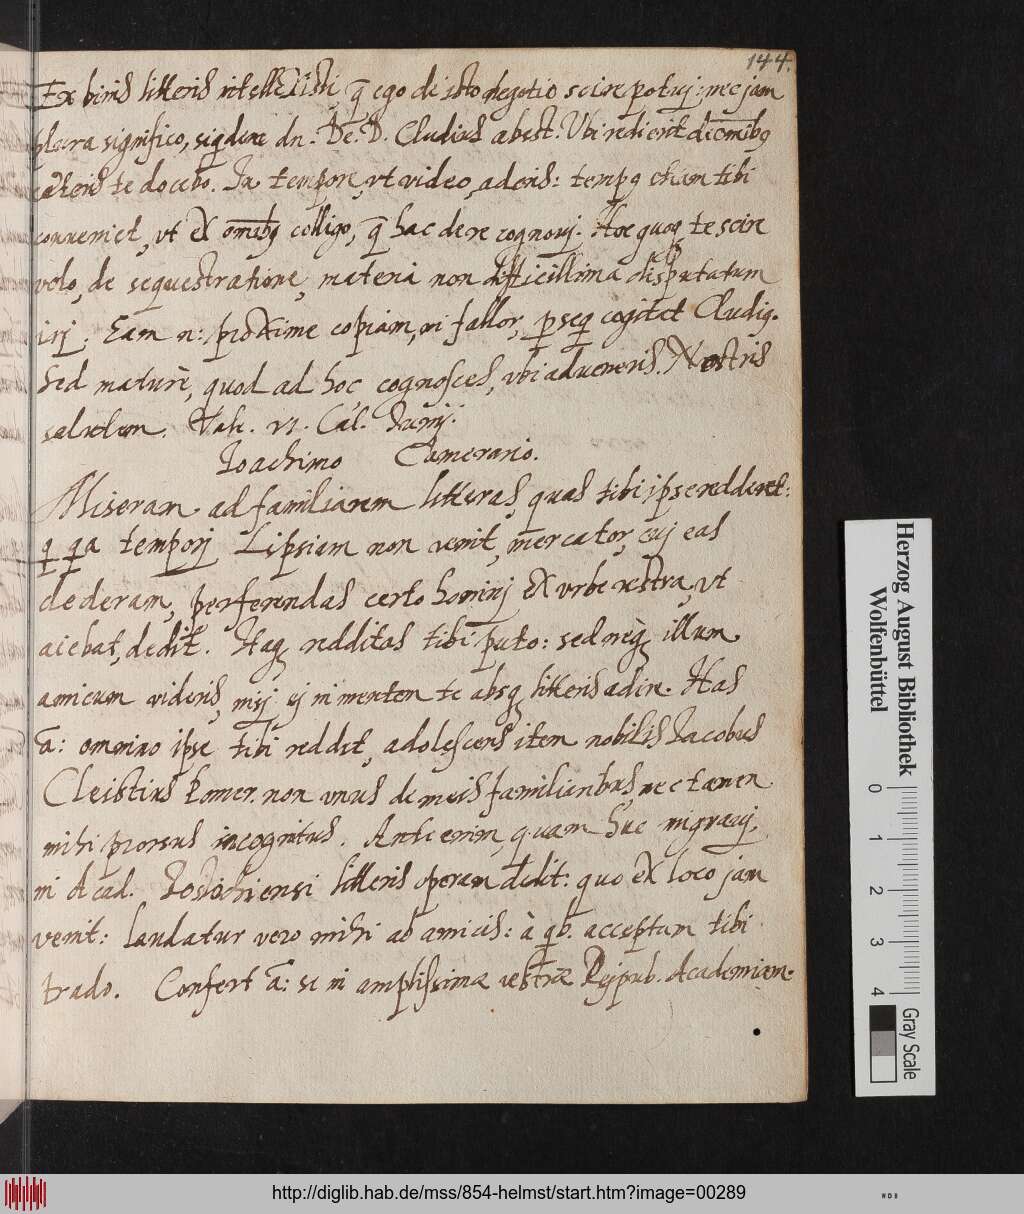 144.
Ex binis litteris intellexisti, q̄ ego de isto negotio scire potuj: nec jam
plura significo, siqdem dn. De. D. Cludius abest. Ubi redierit de omībq
caeteris te docebo. In tempore, vt video, aderis: tempq etiam tibi
conueniet, vt ex omībq colligo, q̄ hac de re cognovj. Hoc quoq te scire
volo, de sequestratione, materia non difficillima disputatum
irj. Eam n: proxime copiam, ni fallor, pseq cogitat Cludiq.
Sed maturè, quod ad hoc, cognosces, vbi adveneris. Nostris
salutem. Vale. VI. Cal. Junij.
Ioachimo Camerario.
Miseram ad familiarem litteras, quas tibi ipse redderet:
q qa temporj Lipsiam non venit, mercator, cuj eas
dederam, perferendas certo hominj ex vrbe vestra, vt
aiebat, dedit. Itaq redditas tibi puto: sed neq illum
amicum videris, misj ej in mentem te absq litteris adire. Has
a: omnino ipse tibi reddet, adolescens item nobilis Jacobus
Cleistius Pomer. non vnus de meis familiaribus, nec tamen
mihi prorsus incognitus. Ante enim, quam huc migravj,
in Acad. Rostochiensi litteris operam dedit: quo ex loco jam
venit: laudatur vero mihi ab amicis: à qb. acceptum tibi
trado. Confert a: se in amplissimae vestrae Reipub. Academiam.
Herzog August Bibliothek
Wolfenbüttel
0 1 2 3 4
Gray Scale
http://diglib.hab.de/mss/854-helmst/start.htm?image=00289
WDB